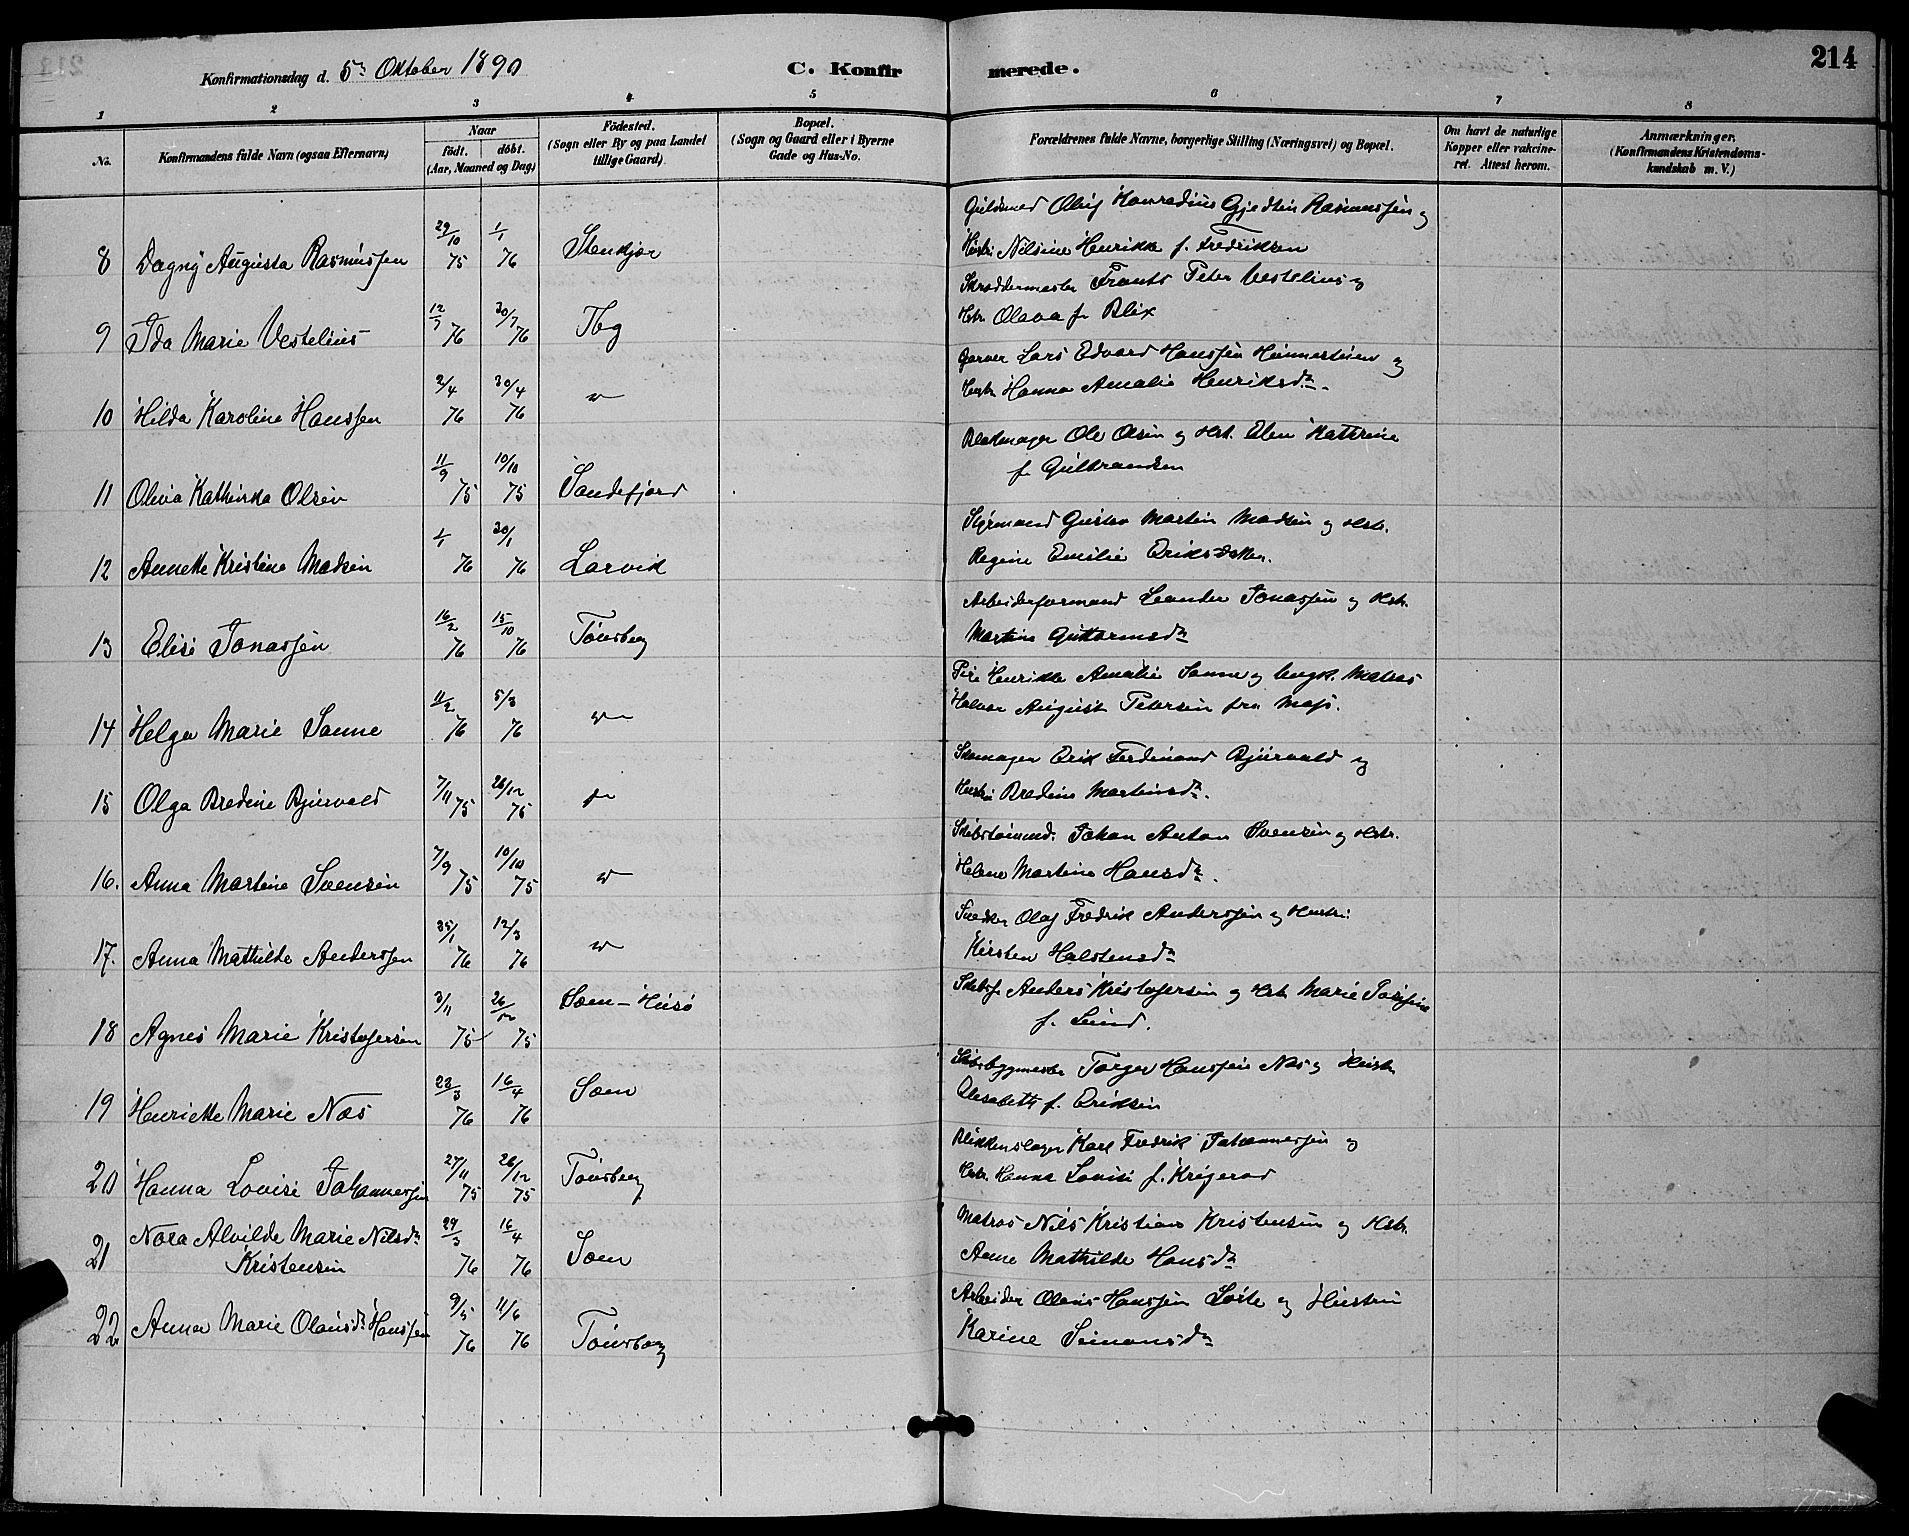 214
Konfirmationsdag d. 5te Oktober 1890
C. Konfirmerede.
1 2 3 4 5 6 7 8
No.
Konfirmandens fulde Navn (ogsaa Efternavn)
Naar
födt. döbt.
(Aar, Maaned og Dag)
Födested.
(Sogn eller By og paa Landet
tillige Gaard).
Bopæl.
(Sogn og Gaard eller i Byerne
Gade og Hus-No.
Forældrenes fulde Navne, borgerlige Stilling (Næringsvei) og Bopæl.
Om havt de naturlige
Kopper eller vakcine-
ret. Attest herom.
Anmærkninger.
(Konfirmandens Kristendoms-
kundskab m. V.)
8 Dagny Augusta Rasmussen 29/10 75 1/1 76 Stenkjær
Guldsmed Oluf Konradius Gjedtin Rasmussen og
Hustr. Nilsine Henrikke f. Fredriksen
9 Ida Marie Vestelius 12/7 76 30/7 76 Tbg
Skræddermester Frants Peter Vestelius og
Hstr. Olava f. Blix
10 Hilda Karoline Hanssen 2/4 76 30/4 76 "
Garver Lars Edvard Hanssen og
Hustr. Hanna Amalie Henriksdr.
11 Olivia Kathinka Olsen 11/9 75 10/10 75 Sandefjord
Blokmager Ole Olsen og Hst. Elen Katrine
f. Gulbrandsen
12 Annette Kristine Madsen 1/1 76 30/1 76 Larvik
Styrmand Gustav Martin Madsen og Hstr.
Regine Emilie Eriksdatter.
13 Elise Jonassen 16/2 76 15/10 76 Tönsberg
Arbeiderformand Leander Jonassen og Hstr.
Martine Guttormsdr
14 Helga Marie Sanne 11/2 76 5/3 76 "
Pige Henrikke Amalie Sanne og ungk. Matros
Halvor August Petersen fra Moss.
15 Olga Bredine Bjurvald 7/11 75 26/12 75 "
Skomager Erik Ferdinand Bjurvald og
Hustru Bredine Martinsdr.
16. Anna Martine Svensen 7/9 75 10/10 75 "
Skibstömmd. Johan Anton Svensen og Hstr.
Helene Martine Hansdr.
17. Anna Mathilde Anderssen 25/1 76 12/3 76 "
Snedker Olaf Fredrik Anderssen og Hustru
Kirsten Halstensdr
18 Agnes Marie Kristofersen 3/11 75 26/12 75 Sæm - Husö
Skibsf. Anders Kristofersen og Hst. Marie
f. Lund.
19 Henriette Marie Næs 23/3 76 16/4 76 Sæm
Skibsbyggmester Torger Hanssen Næs og Hustr.
Elisabeth f. Eriksen
20 Hanna Lovise Johannessen 27/11 75 26/12 75 Tönsberg
Blikkenslager Karl Fredrik Johannessen og
Hstr. Hanna Lovise f. Krigerod
21 Nora Alvilde Marie Nilsdr. 29/3 76 16/4 76 Sæm
Kristensen
Matros Nils Kristian Kristensen og Hstr.
Anne Mathilde Hansdr
22 Anna Marie Olausdr. Hanssen 9/5 76 11/6 76 Tönsberg
Arbeider Olaus Hanssen og Hustru
Karine Simonsdr